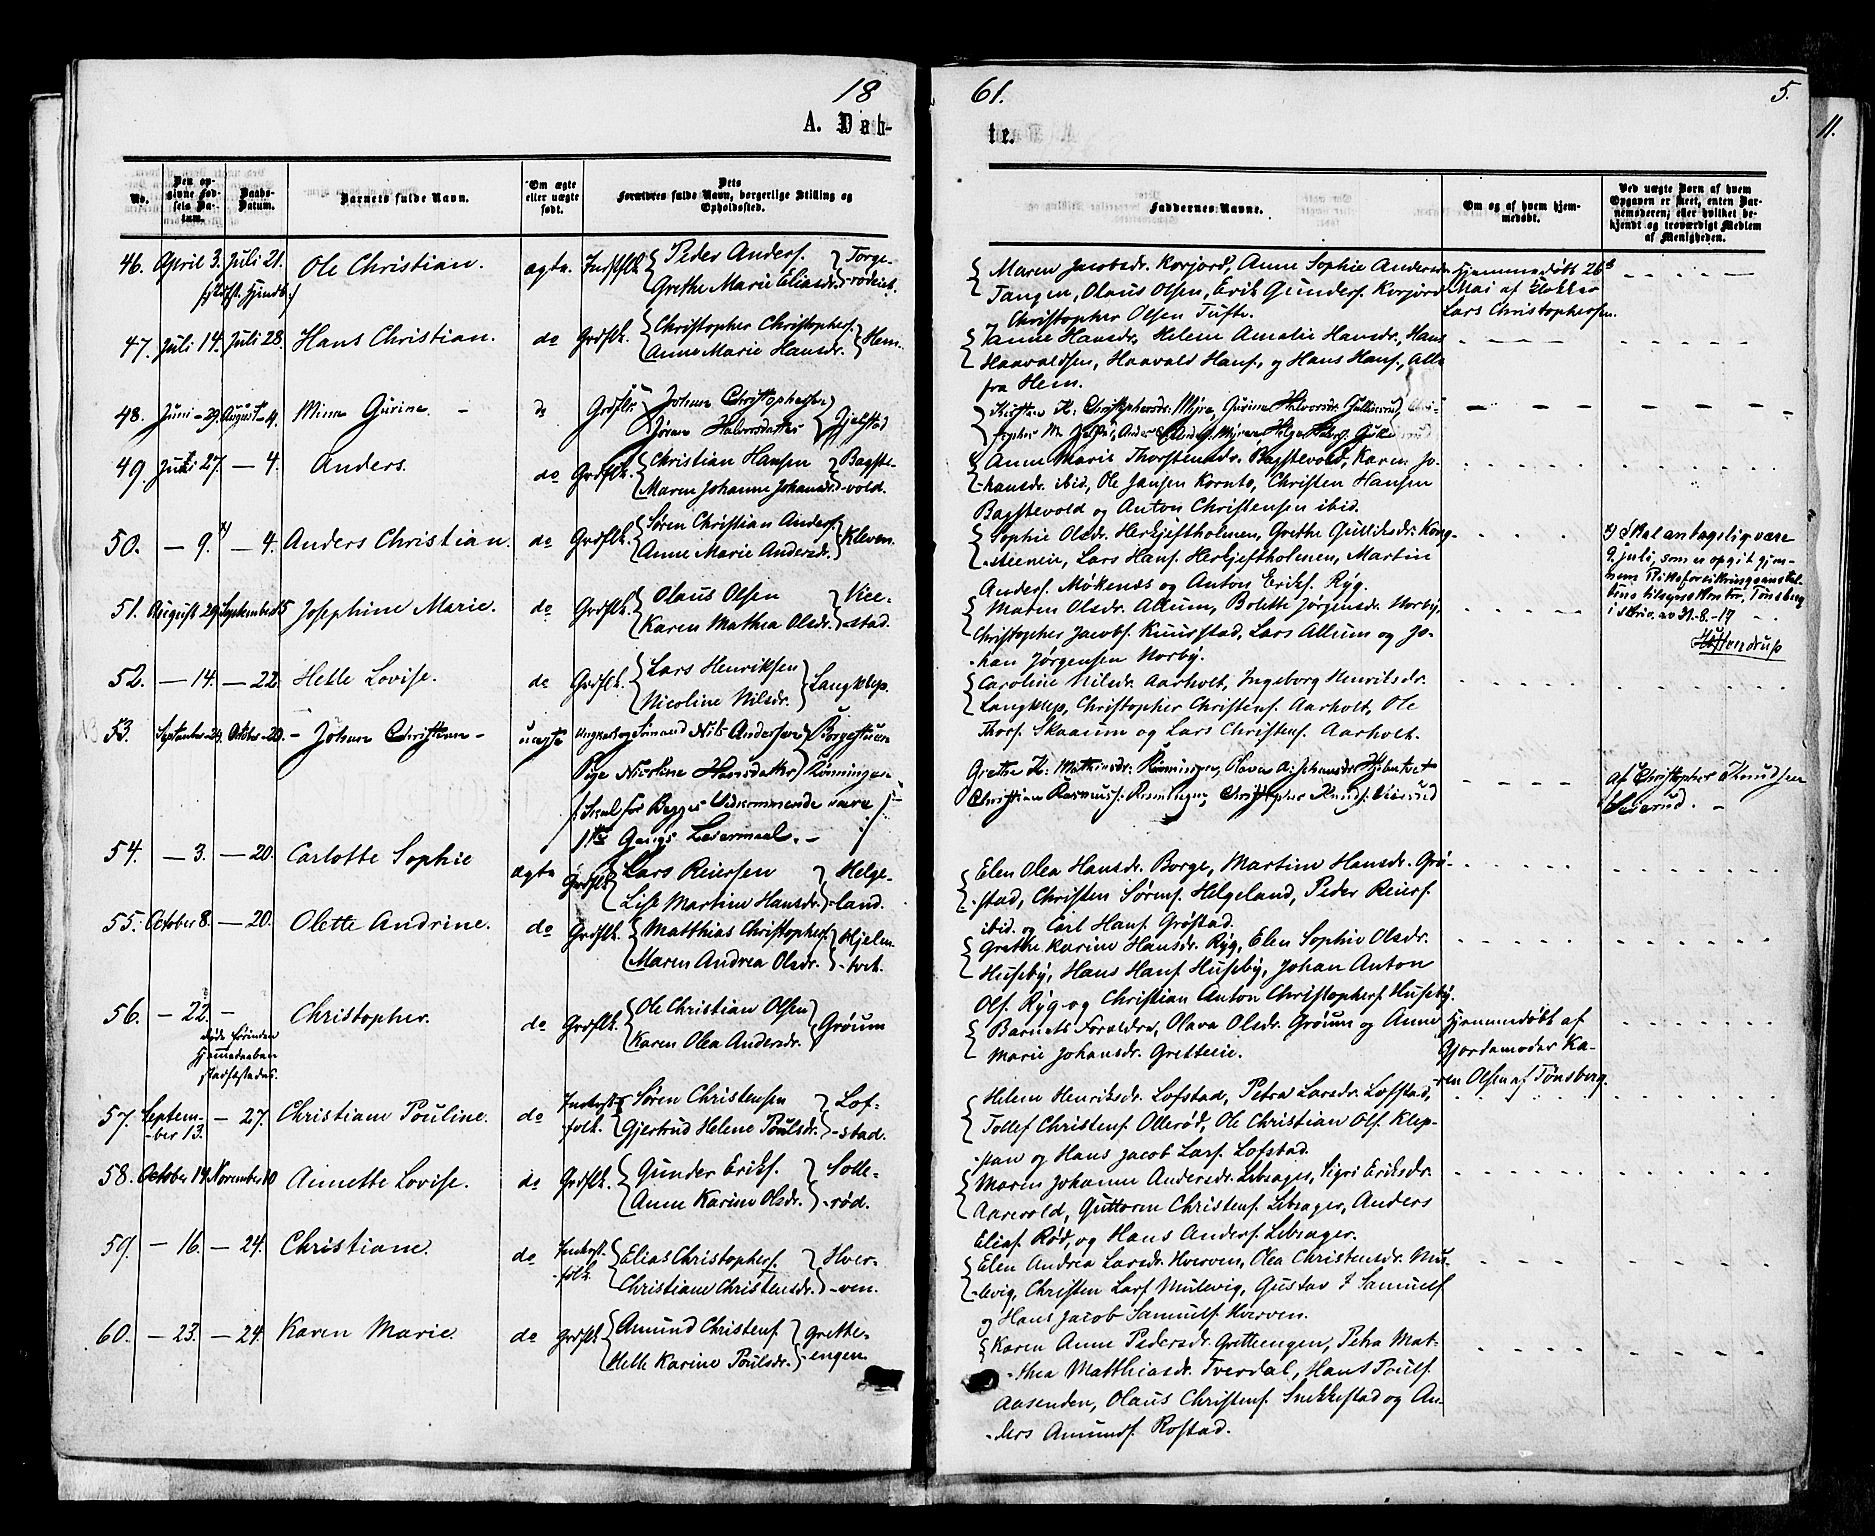 18
61.
5.
11.
A. Dåb-
te.
No.
Den op-
givne Fød-
sels Da-
tum.
Daabs-
Datum.
Barnets fulde Navn.
Om ægte
eller uægte
født.
Dets
Forældres fulde Navn, borgerlige Stilling og
Opholdssted.
Faddernes Navne.
Om og af hvem hjem-
medøbt.
Ved uægte Børn af hvem
Opgaven er skeet, enten Bar-
nemoderen, eller hvilket be-
kjendt og troværdigt Medlem
af Menigheden.
46. April 3. Juli 21. Ole Christian. ægte. Indstflk. Peder Anders. Torge-
Grethe Marie Eliasdr. -rødeie.
Maren Jacobsdr. Korsjord, Anne Sophie Andersdr.
Tangen, Olaus Olsen, Erik Gunders. Korsjord
Christopher Olsen Tufte.
Hjemmedøbt 26
Mai af Klokker
Lars Christophersen.
47. Juli 14. Juli 28. Hans Christian. do Grdflk. Christopher Christophers. Hem.
Anne Marie Hansdr.
Hansdr, Helene Amalie Hansdr, Hans
Haavaldsen, Haavald Hans. og Hans Hans. Alle
fra Hem.
48. Juni 29. August 4. Mina Gurine. do Grdflk. Johan Christophersen Gjelstad
Jøran Halvorsdatter
49. Juli 27. — 4. Anders. do Grdflk. Christian Hansen Bagste-
Maren Johanne Johansdr. -vold.
Anne Marie Thorstensdr. Bagstevold, Karen Jo-
hansdr. ibid, Ole Jansen Kornto, Christen Hansen
Bagstevold og Anton Christensen ibid.
50. — 9. x) — 4. Anders Christian. do Grdflk. Søren Christian Anders. Kleven.
Anne Marie Andersdr.
Sophie Olsdr. Herkjeftholmen, Grethe Gulliksdr. Kong-
-steenen, Lars Hans. Herkjeftholmen, Martin
Anders. Møkenæs og Anton Eriks. Ryg.
x) Skal antagelig være
9. juli, som er opgit gjen-
nem Riksforsikringsanstal-
tens tilsynskontor, Tønsberg
i skriv. av 31-8-17
51. August 29. September 15 Josephine Marie. do Grdflk. Olaus Olsen Vice-
Karen Mathea Olsdr. -stad.
Maren Olsdr. Allum, Bolette Jørgensdr. Norby,
Christopher Jacobs. Knurstad, Lars Allum og Jo-
-han Jørgensen Norby.
52. — 14. — 22. Helle Lovise. do Grdflk. Lars Henriksen Langklep.
Nicoline Nilsdr.
Caroline Nilsdr. Aarholt, Ingeborg Henriksdr.
Langklep, Christopher Christens. Aarholt, Ole
Thors. Skaaum og Lars Christens. Aarholt.
53. September 24. October 20. Johan Christian uægte Ungkarl og Sømand Nils Andersen Borgestuen
Pige Nicoline Hansdatter Rønningen
Skal for Begges Vedkommende være
1ste Gangs Leiermaal.
af Christopher Knudsen
54. — 3. — 20. Carlotte Sophie ægte Grdflk. Lars Reiersen Helge-
Lise Martine Hansdr. -land.
Elen Olea Hansdr. Borge, Martine Hansdr. Grø-
-stad, Christen Sørens. Helgeland, Peder Reiers.
ibid. og Carl Hans. Grøstad.
55. October 8. — 20. Olette Andrine. do Grdflk. Matthias Christophers. Hjelm-
Maren Andrea Olsdr. -tvet.
Grethe Karine Hansdr. Ryg, Elen Sophie Olsdr.
Huseby, Hans Hans. Huseby, Johan Anton
Ols. Ryg og Christian Anton Christophers. Huseby.
56. — 22. — Christopher. do Grdflk. Ole Christian Olsen Grøum
Karen Olea Andersdr.
døde førinden
Hjemmedaaben
stadfæstedes.
Barnets Forældre, Olava Olsdr. Grøum og Anne
Marie Johansdr. Gretteeie.
Hjemmedøbt af
Gjordemoder Ka-
ren Olsen af Tønsberg.
57. Septem-
-ber 13. — 27. Christiane Pouline. do Inderst-
folk. Søren Christensen Lof-
Gjertrud Helene Poulsdr. -stad.
Helene Henriksdr. Lofstad, Petra Larsdr. Lofstad,
Tollef Christens. Ollerød, Ole Christian Ols. Klep-
pan og Hans Jacob Lars. Lofstad.
58. October 14. November 10 Annette Lovise. do Grdflk. Gunder Eriks. Solle-
Anne Karine Olsdr. -rød.
Maren Johanne Andersdr. Lebsager, Sigri Eriksdr.
Aarevold, Guttorm Christens. Lebsager, Anders
Elias. Rød, og Hans Anders. Lebsager.
59. — 16. — 24. Christiane. do Inderst-
-folk. Elias Christophers. Hver-
Christiane Christensdr. -ven.
Elen Andrea Larsdr. Hverven, Olea Christensdr. Mu-
-levig, Christen Lars. Mulevig, Gustav Samuels.
og Hans Jacob Samuels. Hverven.
60. — 23. — 24. Karen Marie. do Grdflk. Amund Christens. Grette-
Helle Karine Poulsdr. -engen.
Karen Anne Pedersdr. Grettengen, Petra Mat-
-thea Matthiasdr. Tverdal, Hans Pouls.
Aasenden, Olaus Christens. Snekkestad og An-
-ders Amunds. Rostad.